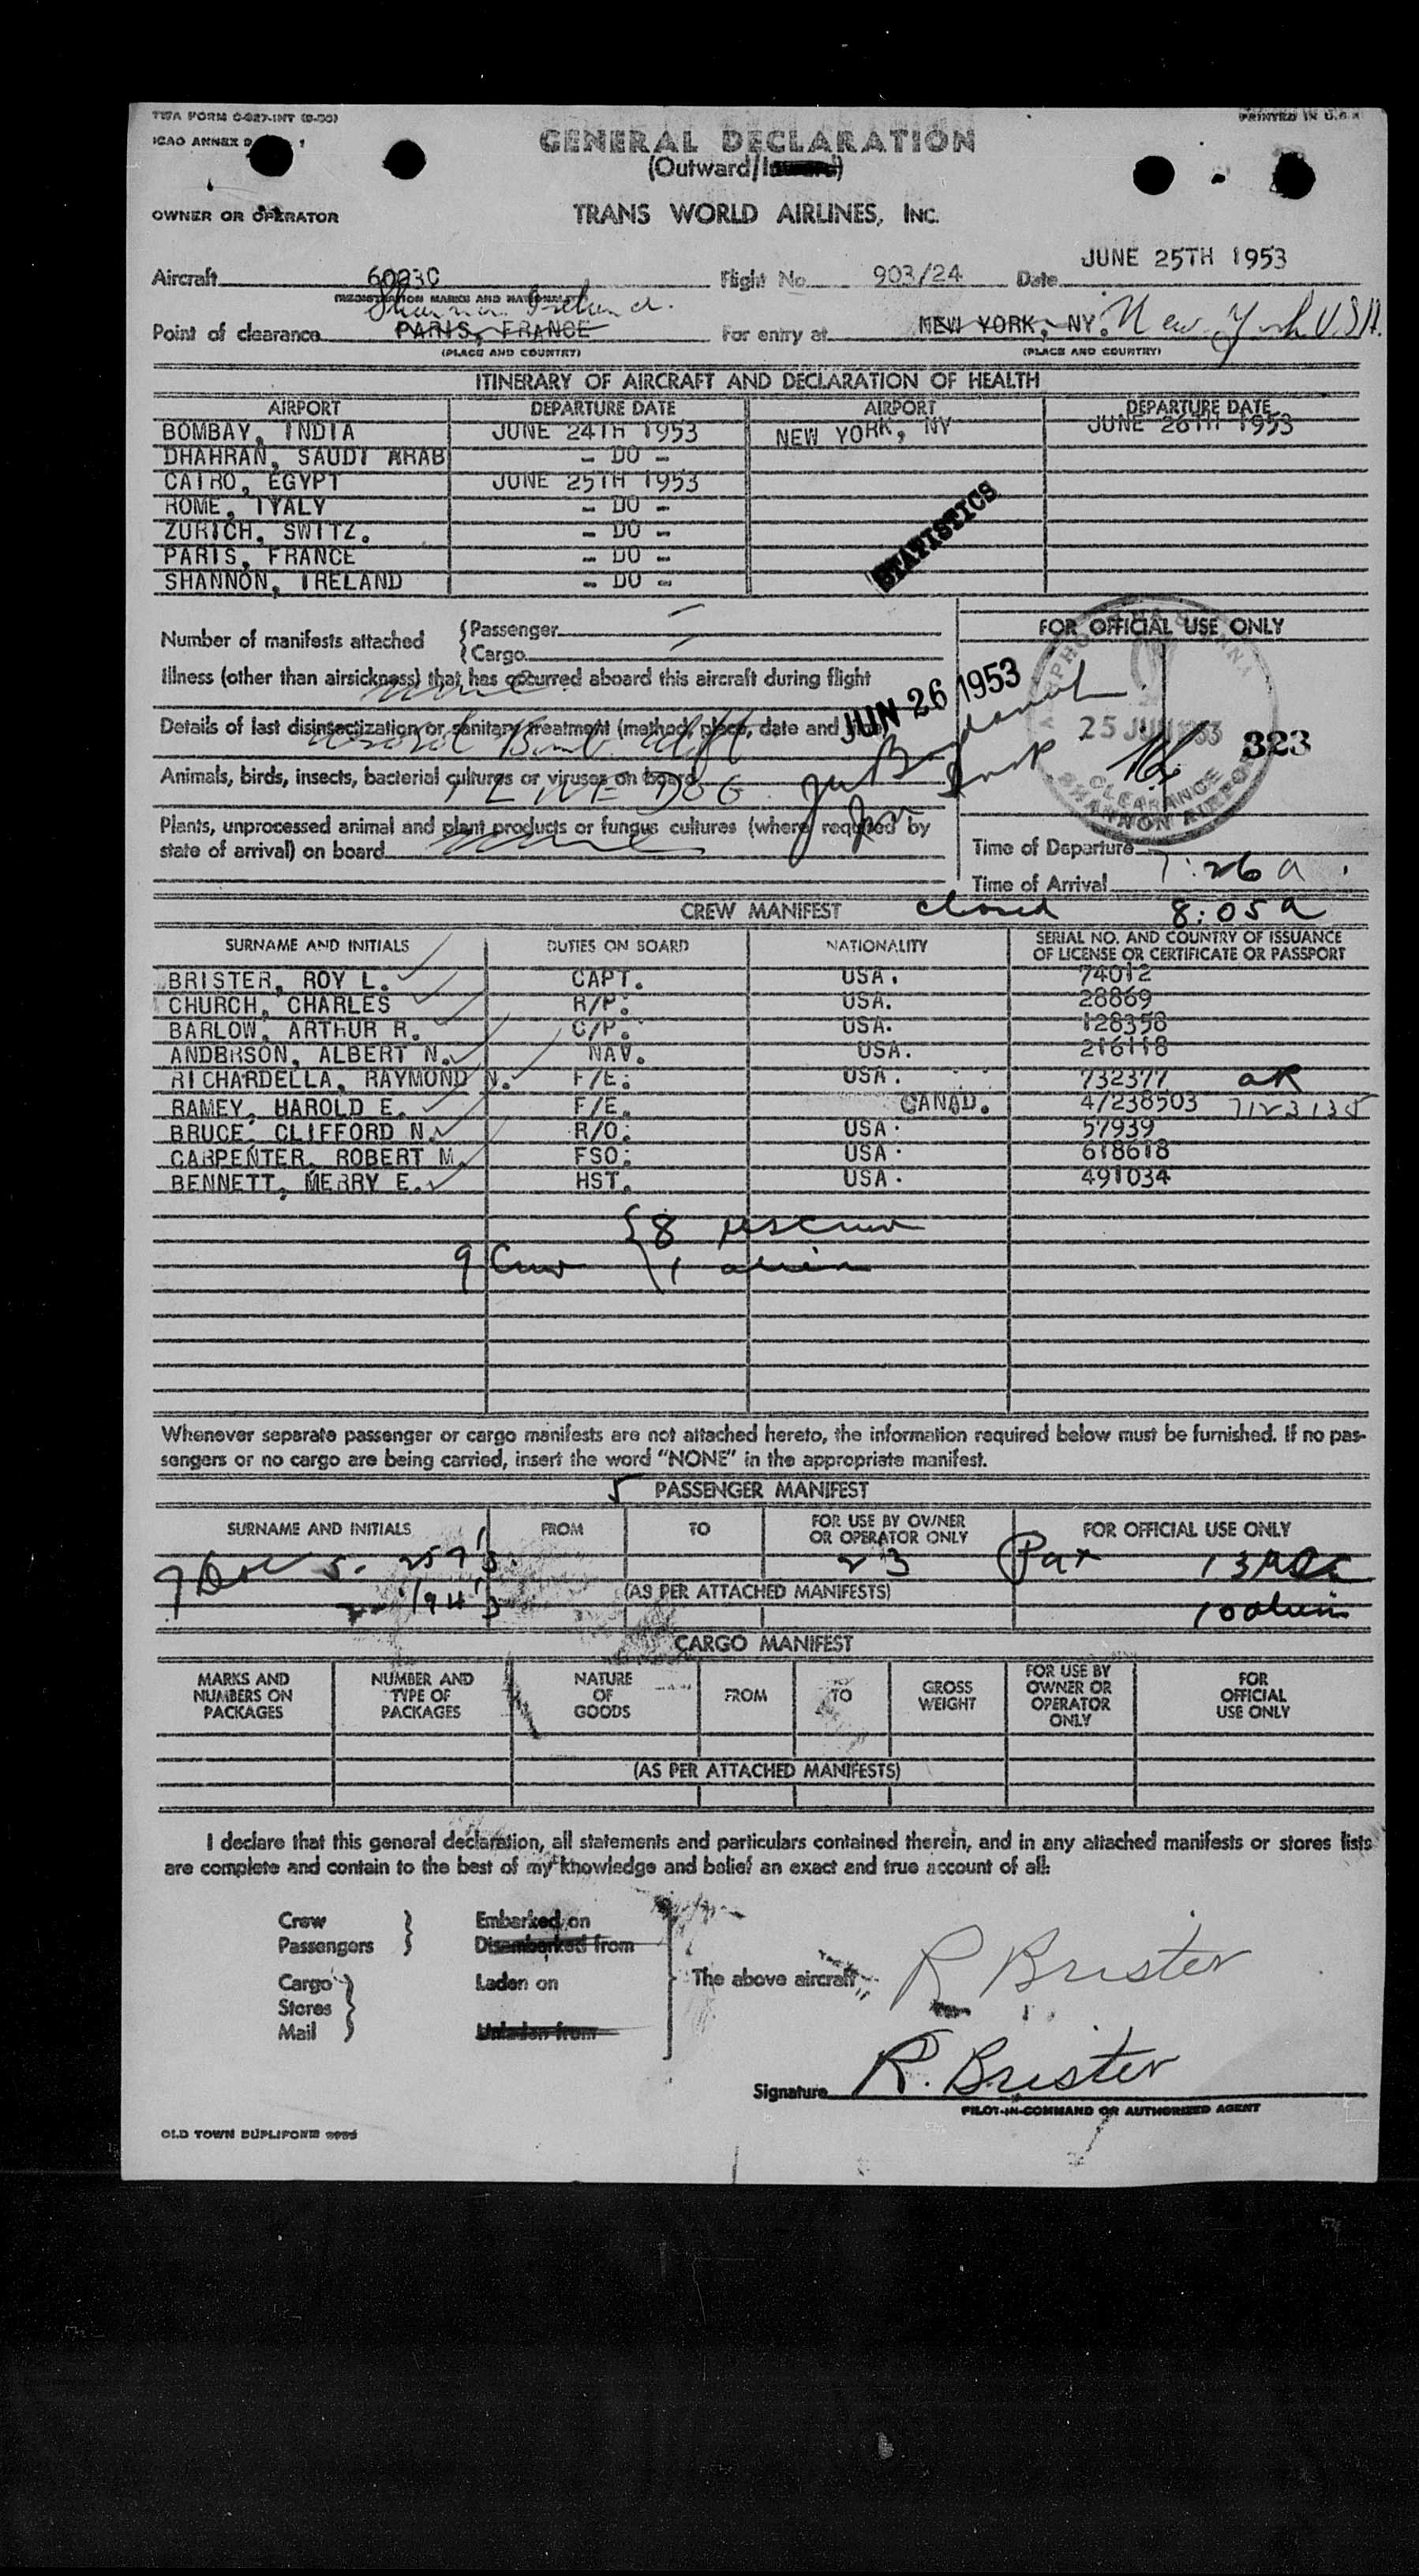 TWA FORM C-927-INT (9-50)
PRINTED IN U.S.A
ICAO ANNEX 9 1
GENERAL DECLARATION
(Outward/Inward)
OWNER OR OPERATOR TRANS WORLD AIRLINES, INC.
Aircraft 6023C Flight No. 903/24 Date JUNE 25TH 1953
(REGISTRATION MARKS AND NATIONALITY)
Shannon Ireland.
Point of clearance PARIS, FRANCE For entry at NEW YORK, NY. New York U.S.A.
(PLACE AND COUNTRY) (PLACE AND COUNTRY)
ITINERARY OF AIRCRAFT AND DECLARATION OF HEALTH
AIRPORT DEPARTURE DATE AIRPORT DEPARTURE DATE
BOMBAY, INDIA JUNE 24TH 1953 NEW YORK, NY JUNE 26TH 1953
DHAHRAN, SAUDI ARAB - DO -
CAIRO, EGYPT JUNE 25TH 1953
ROME, ITALY - DO -
ZURICH, SWITZ. - DO -
PARIS, FRANCE - DO -
SHANNON, IRELAND - DO -
STATISTICS
Number of manifests attached {Passenger
{Cargo
FOR OFFICIAL USE ONLY
Illness (other than airsickness) that has occurred aboard this aircraft during flight
none
JUN 26 1953
Details of last disinsectization or sanitary treatment (method, place, date and
Aerosol Bomb
25 JUN 1953
323
CLEARANCE
SHANNON AIRPORT
Animals, birds, insects, bacterial cultures or viruses on board
1 LIVE DOG
Plants, unprocessed animal and plant products or fungus cultures (where required by
state of arrival) on board none
Time of Departure
Time of Arrival 7:26 a
CREW MANIFEST closed 8:05 a
SURNAME AND INITIALS DUTIES ON BOARD NATIONALITY SERIAL NO. AND COUNTRY OF ISSUANCE OF LICENSE OR CERTIFICATE OR PASSPORT
BRISTER, ROY L. CAPT. USA. 74012
CHURCH, CHARLES R/P. USA. 28869
BARLOW, ARTHUR R. C/P. USA. 128358
ANDERSON, ALBERT N. NAV. USA. 216118
RICHARDELLA, RAYMOND N. F/E. USA. 732377 aR
RAMEY, HAROLD E. F/E. CANAD. 47238503 7123135
BRUCE, CLIFFORD N. R/O. USA. 57939
CARPENTER, ROBERT M. FSO. USA. 618618
BENNETT, MERRY E. HST. USA. 491034
9 Crew {8 uscrew
1 alien
Whenever separate passenger or cargo manifests are not attached hereto, the information required below must be furnished. If no pas-
sengers or no cargo are being carried, insert the word "NONE" in the appropriate manifest.
5 PASSENGER MANIFEST
SURNAME AND INITIALS FROM TO FOR USE BY OWNER OR OPERATOR ONLY FOR OFFICIAL USE ONLY
5- 257's. 23 Pax 13 USC
2- 194's (AS PER ATTACHED MANIFESTS) 10 alien
CARGO MANIFEST
MARKS AND NUMBERS ON PACKAGES NUMBER AND TYPE OF PACKAGES NATURE OF GOODS FROM TO GROSS WEIGHT FOR USE BY OWNER OR OPERATOR ONLY FOR OFFICIAL USE ONLY
(AS PER ATTACHED MANIFESTS)
I declare that this general declaration, all statements and particulars contained therein, and in any attached manifests or stores lists
are complete and contain to the best of my knowledge and belief an exact and true account of all:
Crew Embarked on
Passengers Disembarked from
Cargo Laden on The above aircraft R Brister
Stores
Mail Unladen from
Signature R. Brister
PILOT-IN-COMMAND OR AUTHORIZED AGENT
OLD TOWN DUPLIFORM